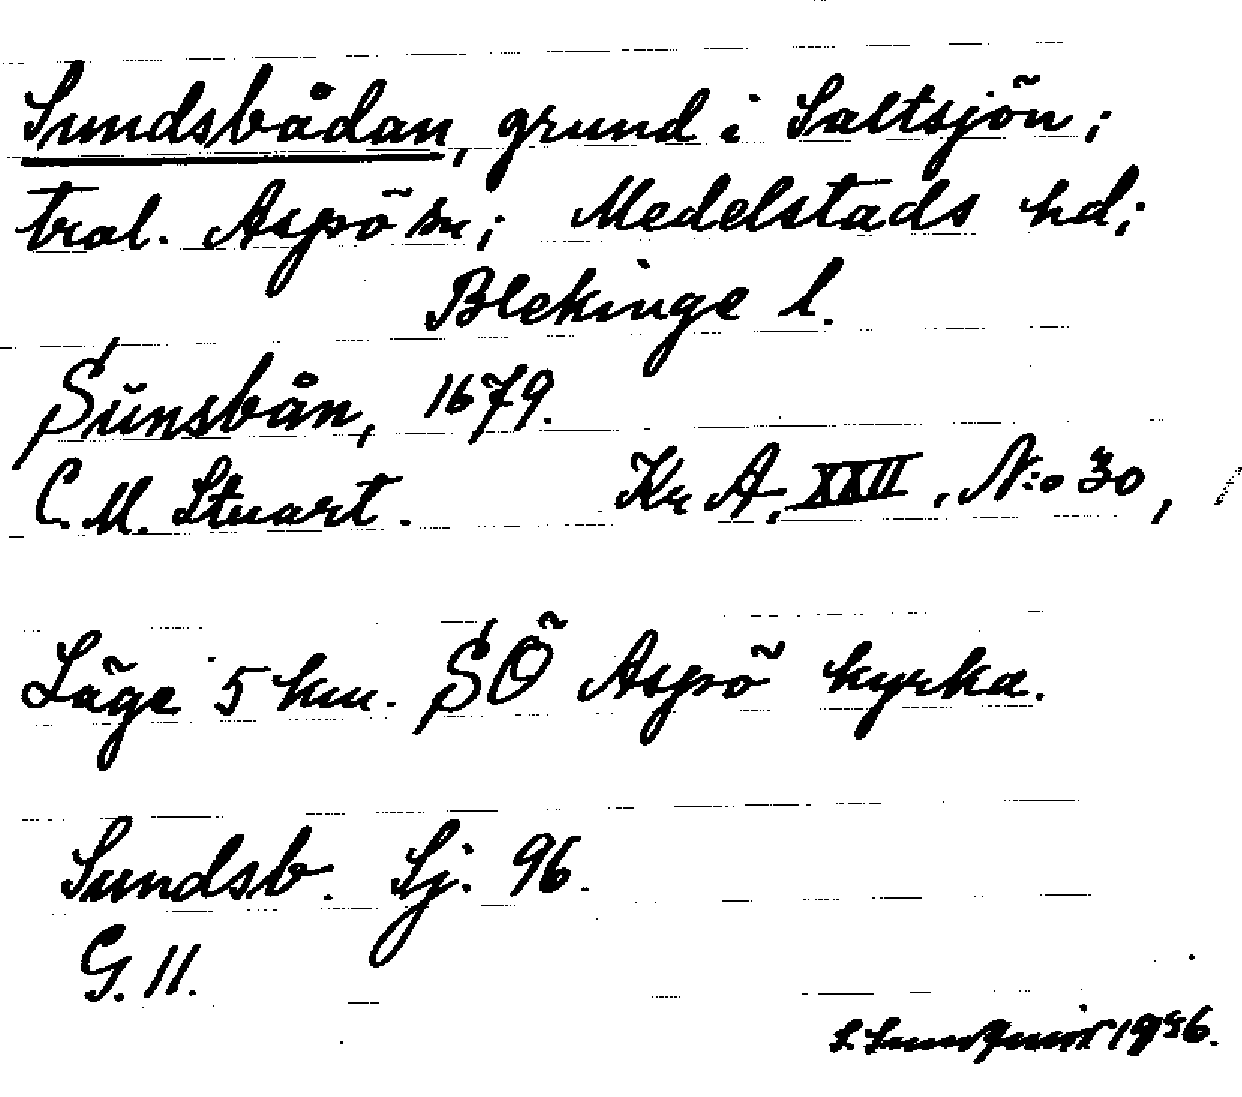 Sundsbådan, grund i Saltsjön;
tral. Aspö sn; Medelstads hd;
Blekinge l.
Sŭnsbån, 1679.
C. M. Stuart. Kr A, XXII, N:o 30,
Läge 5 km. SÖ Aspö kyrka.
Sundsb. Sj. 96.
G. 11.
S. 1956.